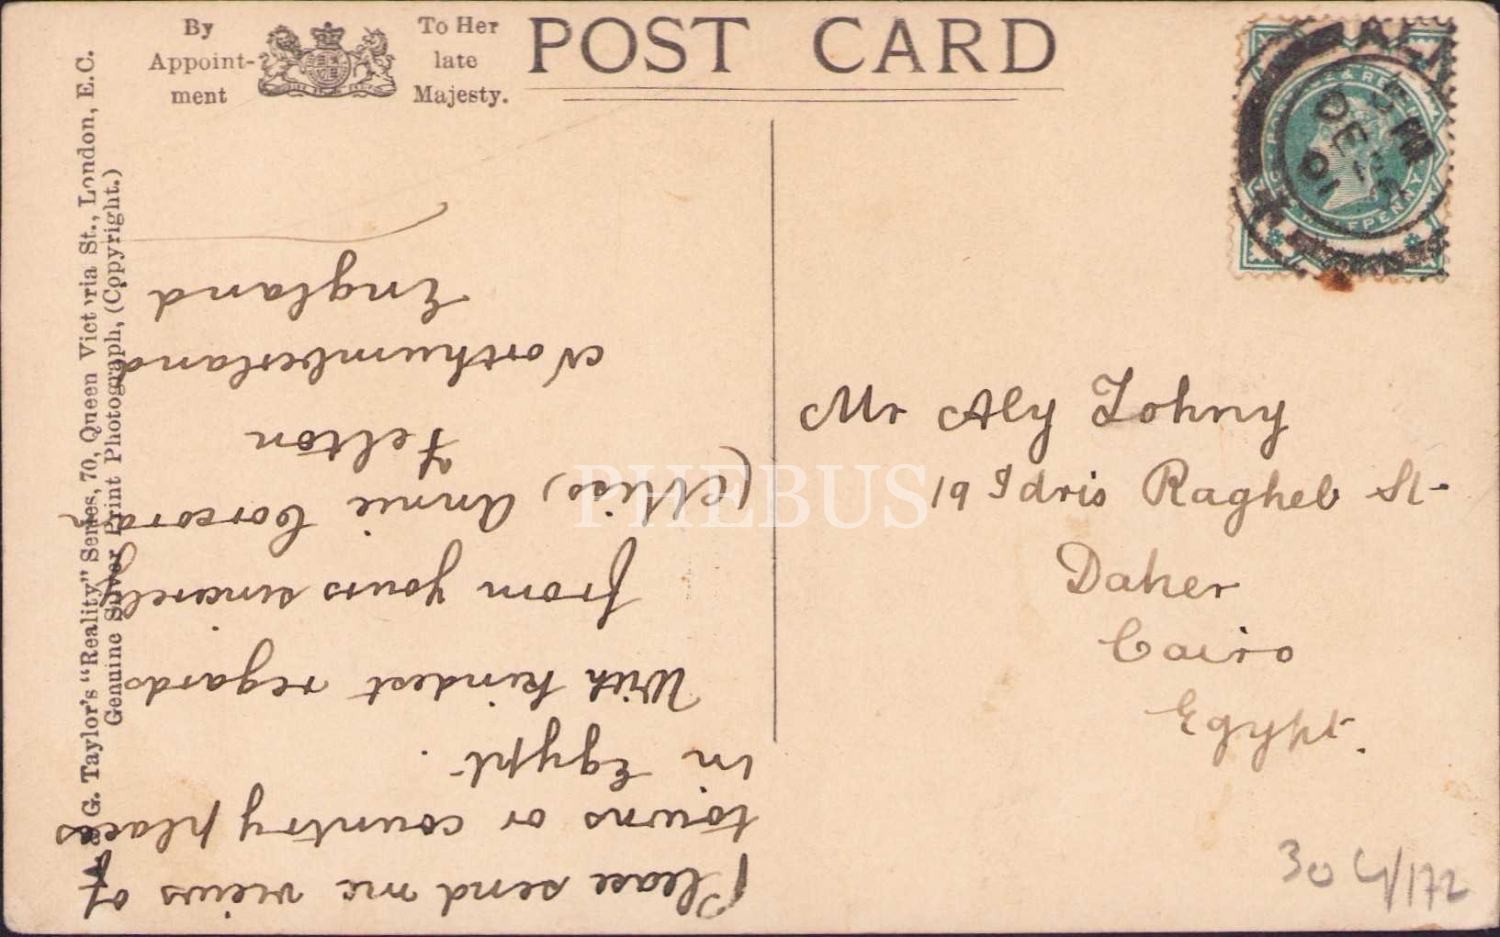 By
Appoint-
ment
To Her
late
Majesty.
POST CARD
A. & G. Taylor's "Reality" Series, 70, Queen Victoria St., London, E.C.
Genuine Silver Print Photograph, (Copyright.)
5 PM
DE 5
01
HALFPENNY
Mr Aly Zohny
19 Idris Ragheb St-
Daher
Cairo
Egypt.
Please send me views of
towns or country places
in Egypt.
With kindest regards
from yours sincerely
(Miss) Annie Corcoran
Felton
Northumberland
England
PHEBUS